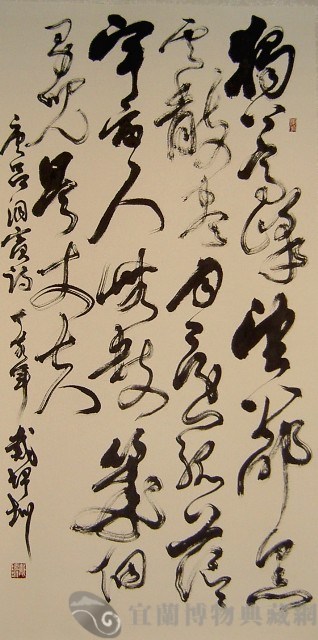 獨上高峰望八都黑
雲散後月還孤茫茫
宇宙人無數幾個
男兒是丈夫
唐呂洞賓詩 丁亥年
宜蘭博物典藏網